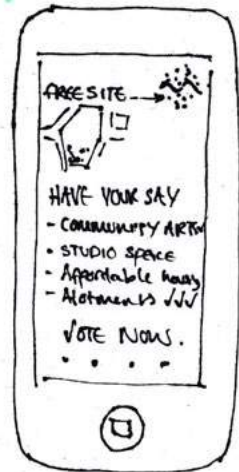 FREE SITE
HAVE YOUR SAY
- COMMUNITY ART
- STUDIO SPACE
- Affordable housing
- Alotments ✓✓✓
VOTE NOW.